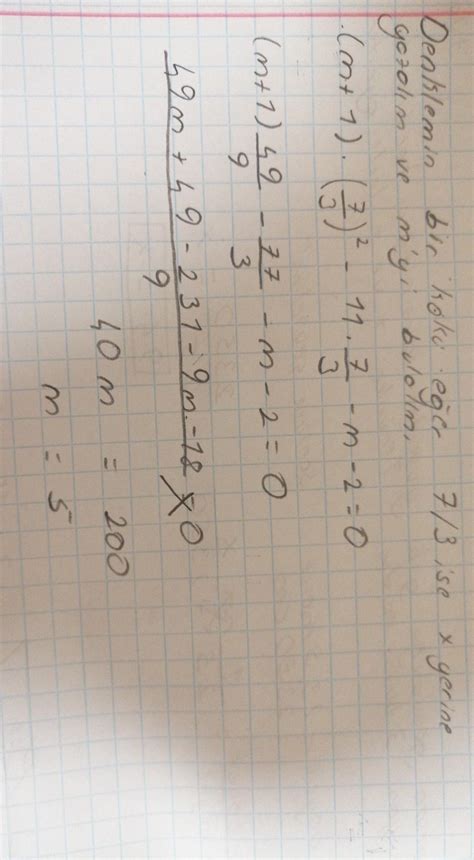 Denklemin bir kökü eğer 7/3 ise x yerine
yazalım ve m'yi bulalım.
.(m+1).(7/3)² - 11.7/3 - m - 2 = 0
(m+1) 49/9 - 77/3 - m - 2 = 0
49m + 49 - 231 - 9m - 18 / 9 = 0
40m = 200
m = 5